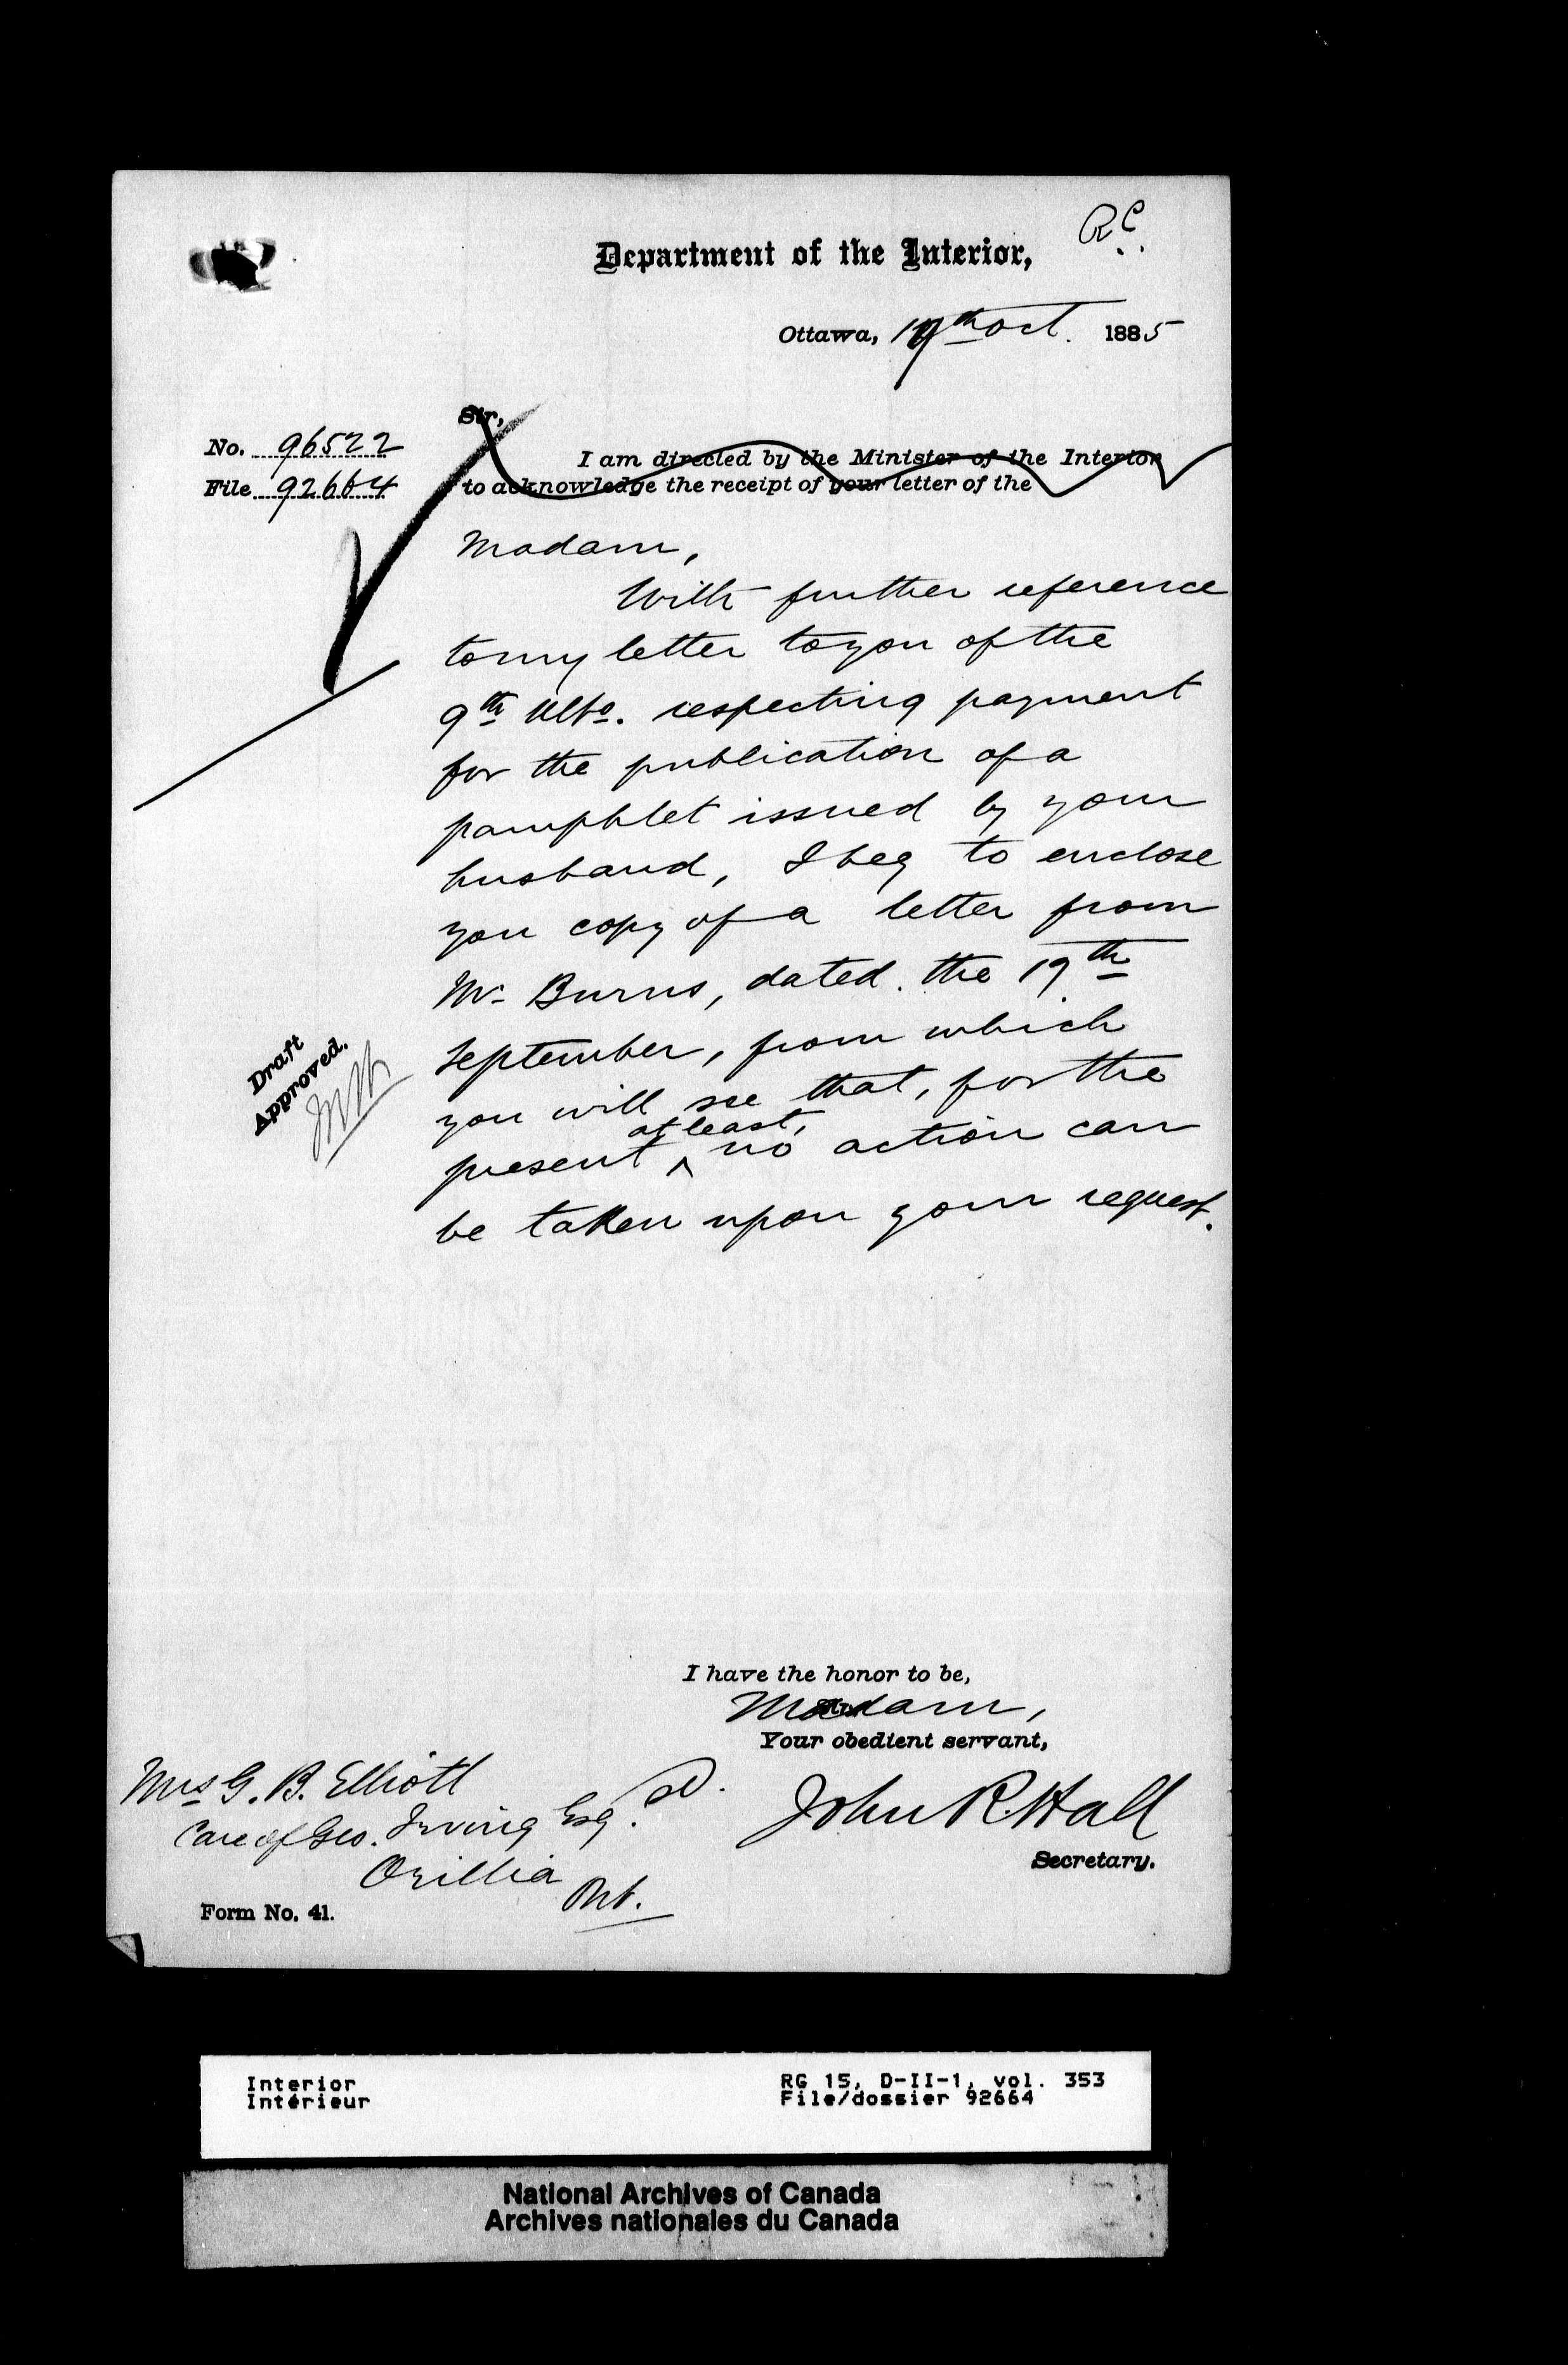 R C.
Department of the Interior,
Ottawa, 19th Oct. 1885
Sir,
No. 96522
File 92664
I am directed by the Minister of the Interior
to acknowledge the receipt of your letter of the
Madam,
With further reference
to my letter to you of the
9th Ulto. respecting payment
for the publication of a
pamphlet issued by your
husband, I beg to enclose
you copy of a letter from
Mr. Burns, dated the 19th
September, from which
you will see that, for the
present at least, no action can
be taken upon your request.
Draft
Approved.
I have the honor to be,
Madam,
Your obedient servant,
Mrs G. B. Elliott
Care of Geo. Irving Esq.
Orillia
Ont.
John R. Hall
Secretary.
Form No. 41.
Interior
Intérieur
RG 15, D-II-1, vol. 353
File/dossier 92664
National Archives of Canada
Archives nationales du Canada